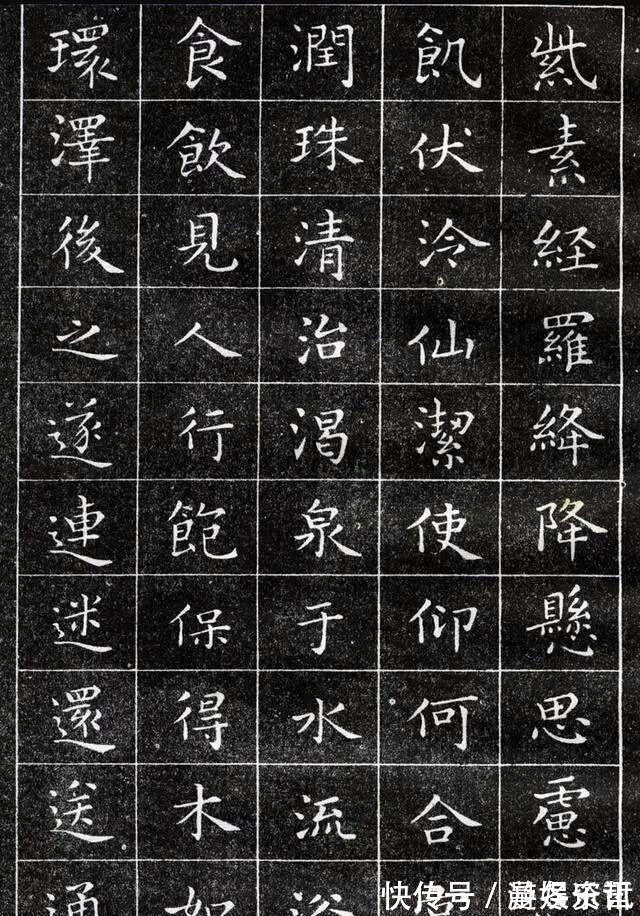 紫素経羅絳降懸思慮
飢伏泠仙潔使仰何合
潤珠清治渴泉于水流浴
食飲見人行飽保得木如
環澤後之遂連迷還送通
快传号 /